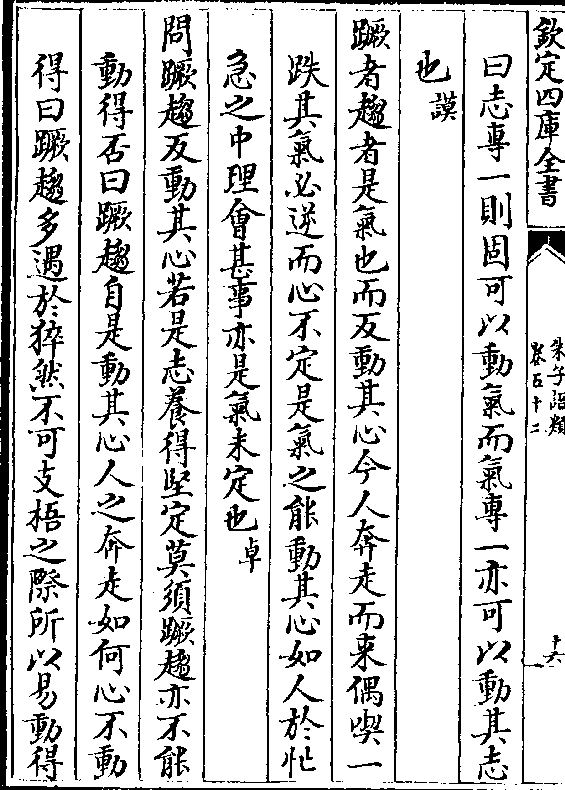 欽定四庫全書
朱子語類
卷五十二
十六
曰志專一則固可以動氣而氣專一亦可以動其志
也謨
蹶者趨者是氣也而反動其心今人奔走而來偶喫一
跌其氣必逆而心不定是氣之能動其心如人於忙
急之中理會甚事亦是氣未定也卓
問蹶趨反動其心若是志養得堅定莫須蹶趨亦不能
動得否曰蹶趨自是動其心人之奔走如何心不動
得曰蹶趨多遇於猝然不可支梧之際所以易動得